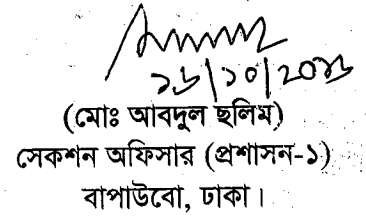 ১৬/১০/২০১৬
(মোঃ আবদুল ছলিম)
সেকশন অফিসার (প্রশাসন-১)
বাপাউবো, ঢাকা।